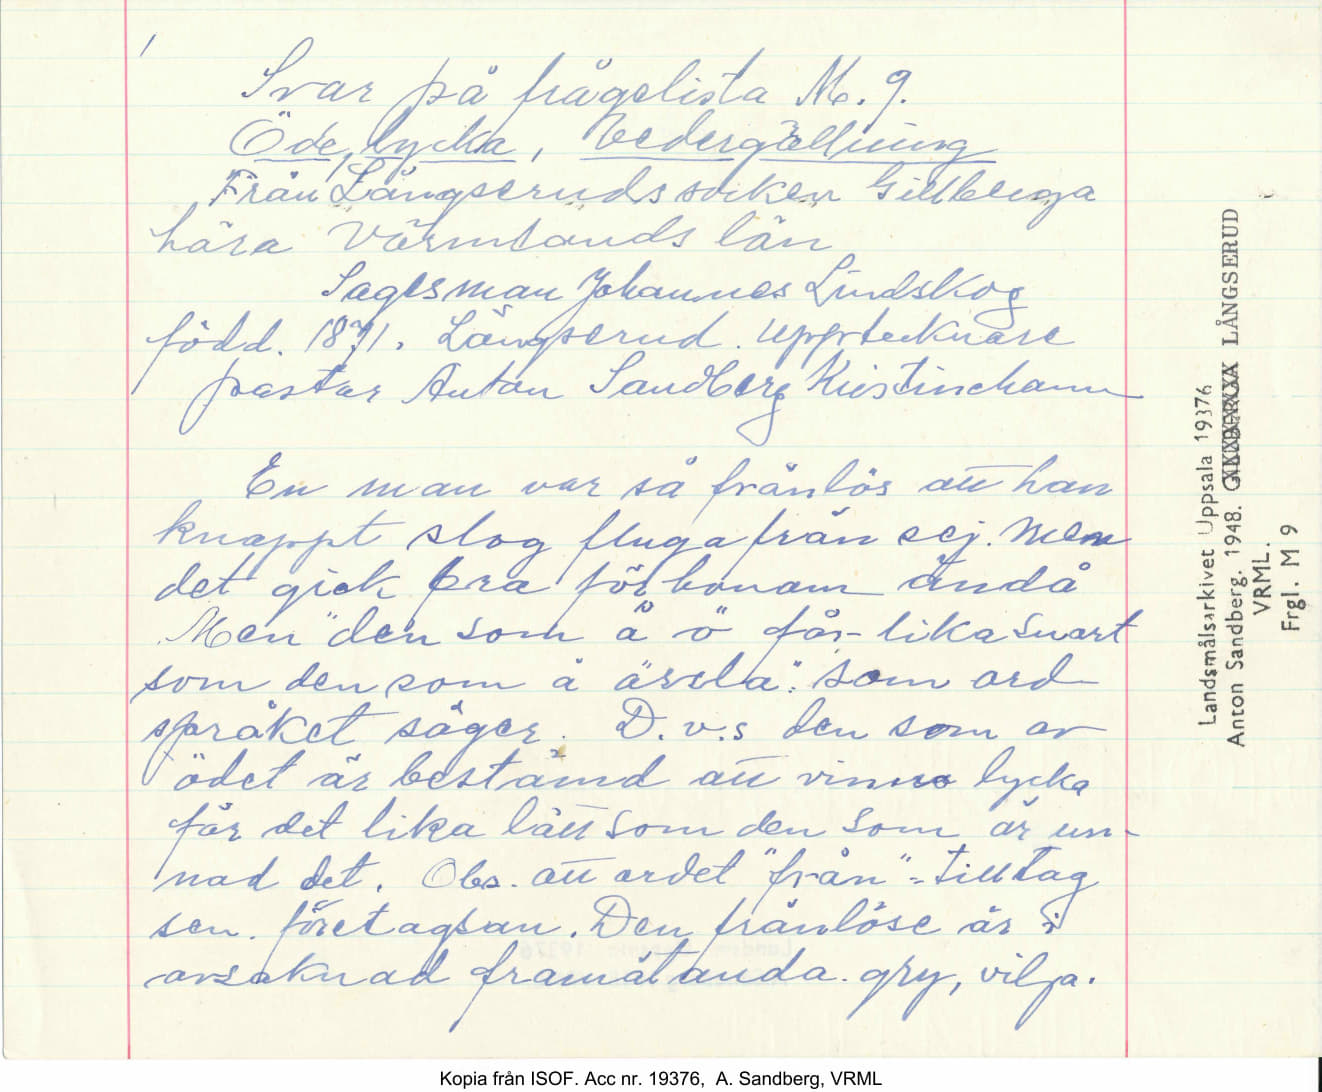 1
Svar på frågelista M. 9.
Öde, lycka, Vedergällning
Från Långseruds socken Gillberga
hära Värmlands län
Sagesman Johannes Lindskog
född. 1871. Långserud. Upptecknare
pastor Anton Sandberg Kristinehamn
En man var så frånlös att han
knappt slog fluga från sej. Men
det gick bra för honom ändå
Men "den som ä ö får lika snart
som den som ä ärela". Som ord-
språket säger. D.v.s den som av
ödet är bestämd att vinna lycka
får det lika lätt som den som är un-
nad det. Obs. att ordet "från" = tilltag
sen. företagsam. Den frånlöse är i
avsaknad framåtanda. gry, vilja.
Landsmålsarkivet Uppsala 19376
Anton Sandberg. 1948. LÅNGSERUD
VRML.
Frgl. M 9
Kopia från ISOF. Acc nr. 19376, A. Sandberg, VRML